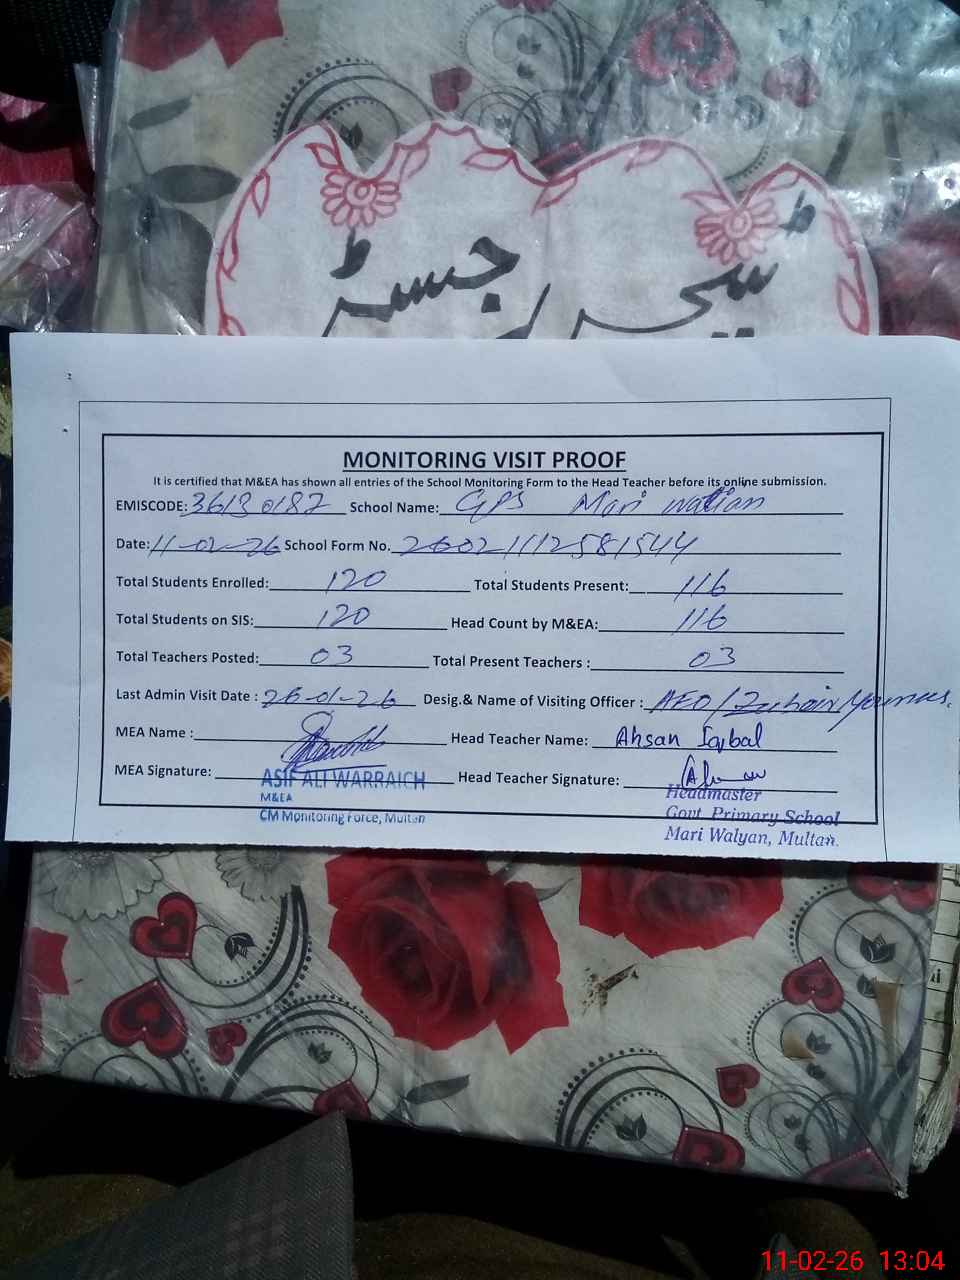 ٹیچرز رجسٹر
MONITORING VISIT PROOF
It is certified that M&EA has shown all entries of the School Monitoring Form to the Head Teacher before its online submission.
EMISCODE: 36130187 School Name: GPS Mari walian
Date: 11-02-26 School Form No. 260211112581544
Total Students Enrolled: 120 Total Students Present: 116
Total Students on SIS: 120 Head Count by M&EA: 116
Total Teachers Posted: 03 Total Present Teachers : 03
Last Admin Visit Date : 26-01-26 Desig.& Name of Visiting Officer : AEO/Zubair Younus.
MEA Name : Head Teacher Name: Ahsan Iqbal
MEA Signature: Head Teacher Signature:
ASIF ALI WARRAICH
M&EA
CM Monitoring Force, Multan
Headmaster
Govt. Primary School
Mari Walyan, Multan.
11-02-26 13:04